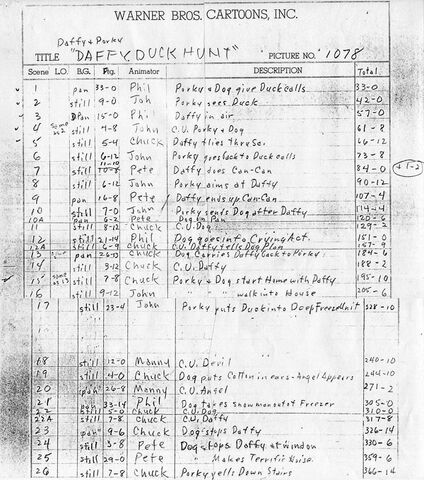 WARNER BROS. CARTOONS, INC.
Daffy & Porky
TITLE "DAFFY DUCK HUNT" PICTURE NO. 1078
Scene L.O. B.G. Ftg. Animator DESCRIPTION Total
1 pan 33-0 Phil Porky & Dog give Duck calls 33-0
2 still 9-0 Joh Porky sees Duck 42-0
3 pan 15-0 Phil Daffy in air 57-0
4 Same as 2 still 4-8 John C.U. Porky & Dog 61-8
5 still 5-4 Chuck Daffy flies thru Sc. 66-12
6 still 6-12 John Porky goes back to Duck calls 73-8
7 still 11-10 Pete Daffy does Can-Can 84-0 +1-2
8 still 6-12 John Porky aims at Daffy 90-12
9 pan 16-8 Pete Daffy ends up Can-Can 107-4
10 still 7-0 John Porky sends Dog after Daffy 114-4
10A pan 6-2 Pete Dog in Pan 120-6
11 still 8-12 Chuck C.U. Dog 129-2
12 still 21-14 Phil Dog goes into Crying Act. 151-0
still 6-9 Chuck C.U. Daffy tells Dog Plan 157-9
13 pan 26-13 Chuck Dog Carries Daffy back to Porky 184-6
14 still 3-12 Chuck C.U. Daffy 188-2
15 Same as 13 still 7-8 Chuck Porky & Dog start Home with Daffy 195-10
16 still 9-12 John " walk into House 205-6
17 still 23-4 John Porky puts Duck into Deep Freeze Unit 228-10
18 still 12-0 Manny C.U. Devil 240-10
19 still 4-0 Chuck Dog puts Cotton in ears-Angel Appears 244-10
20 pan 26-8 Manny C.U. Angel 271-2
21 " 33-14 Phil Dog takes snow man out of Freezer 305-0
22 still 5-0 Chuck C.U. Dog 310-0
22A still 7-8 Chuck C.U. Daffy 317-8
23 pan 9-6 Chuck Dog stops Daffy 326-14
24 still 3-8 Pete Dog stops Daffy at window 330-6
25 still 29-0 Pete " Makes Terrific Noise. 359-6
26 still 7-8 Chuck Porky yells Down Stairs 366-14